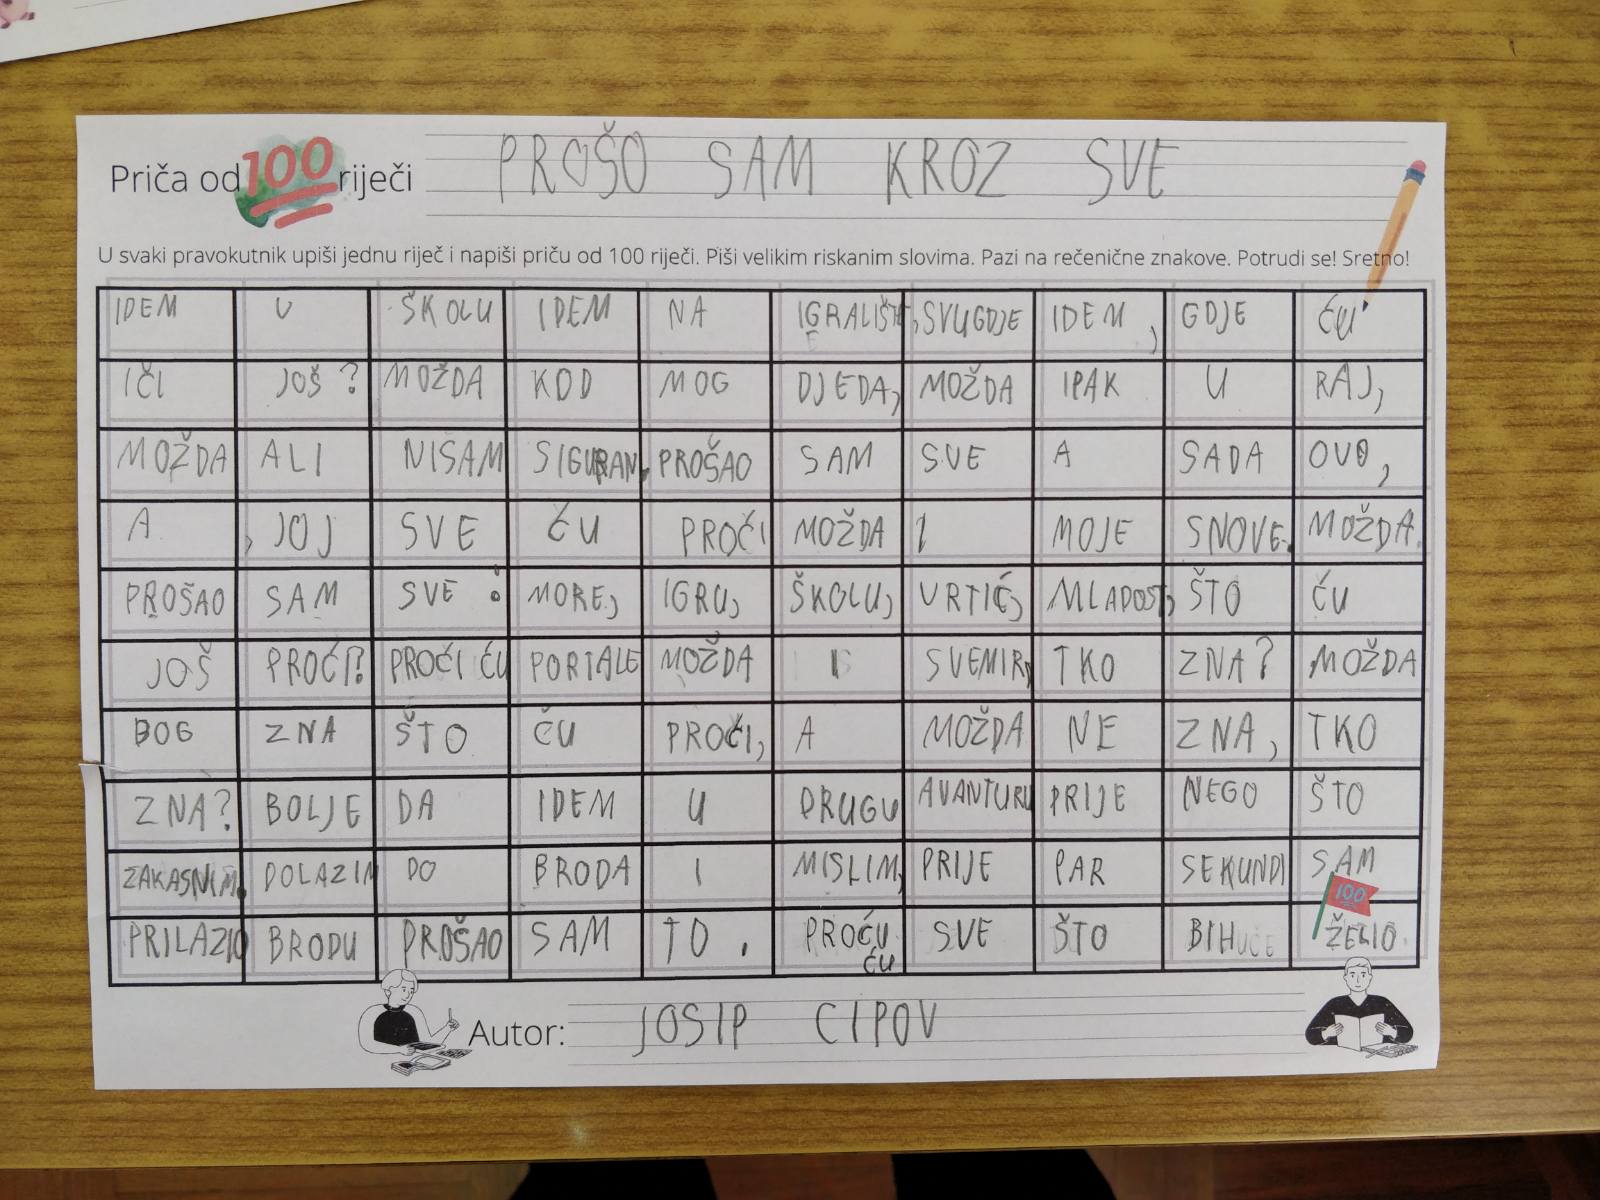 Priča od 100 riječi PROŠO SAM KROZ SVE
U svaki pravokutnik upiši jednu riječ i napiši priču od 100 riječi. Piši velikim riskanim slovima. Pazi na rečenične znakove. Potrudi se! Sretno!
IDEM U ŠKOLU IDEM NA IGRALIŠTE, SVUGDJE IDEM, GDJE ĆU
IČI JOŠ? MOŽDA KOD MOG DJEDA, MOŽDA IPAK U RAJ,
MOŽDA ALI NIŠAM SIGURAN. PROŠAO SAM SVE A SADA OVO,
A , JOJ SVE ĆU PROĆI MOŽDA I MOJE SNOVE. MOŽDA.
PROŠAO SAM SVE : MORE, IGRU, ŠKOLU, VRTIĆ, MLADOST, ŠTO ĆU
JOŠ PROĆI? PROĆI ĆU PORTALE MOŽDA I SVEMIR, TKO ZNA? MOŽDA
BOG ZNA ŠTO ĆU PROĆI, A MOŽDA NE ZNA, TKO
ZNA? BOLJE DA IDEM U DRUGU AVANTURU PRIJE NEGO ŠTO
ZAKASNIM. DOLAZIM DO BRODA I MISLIM, PRIJE PAR SEKUNDI SAM
100
PRILAZIO BRODU PROŠAO SAM TO. PROĆU ĆU SVE ŠTO BIH ŽELIO.
Autor: JOSIP CIPOV